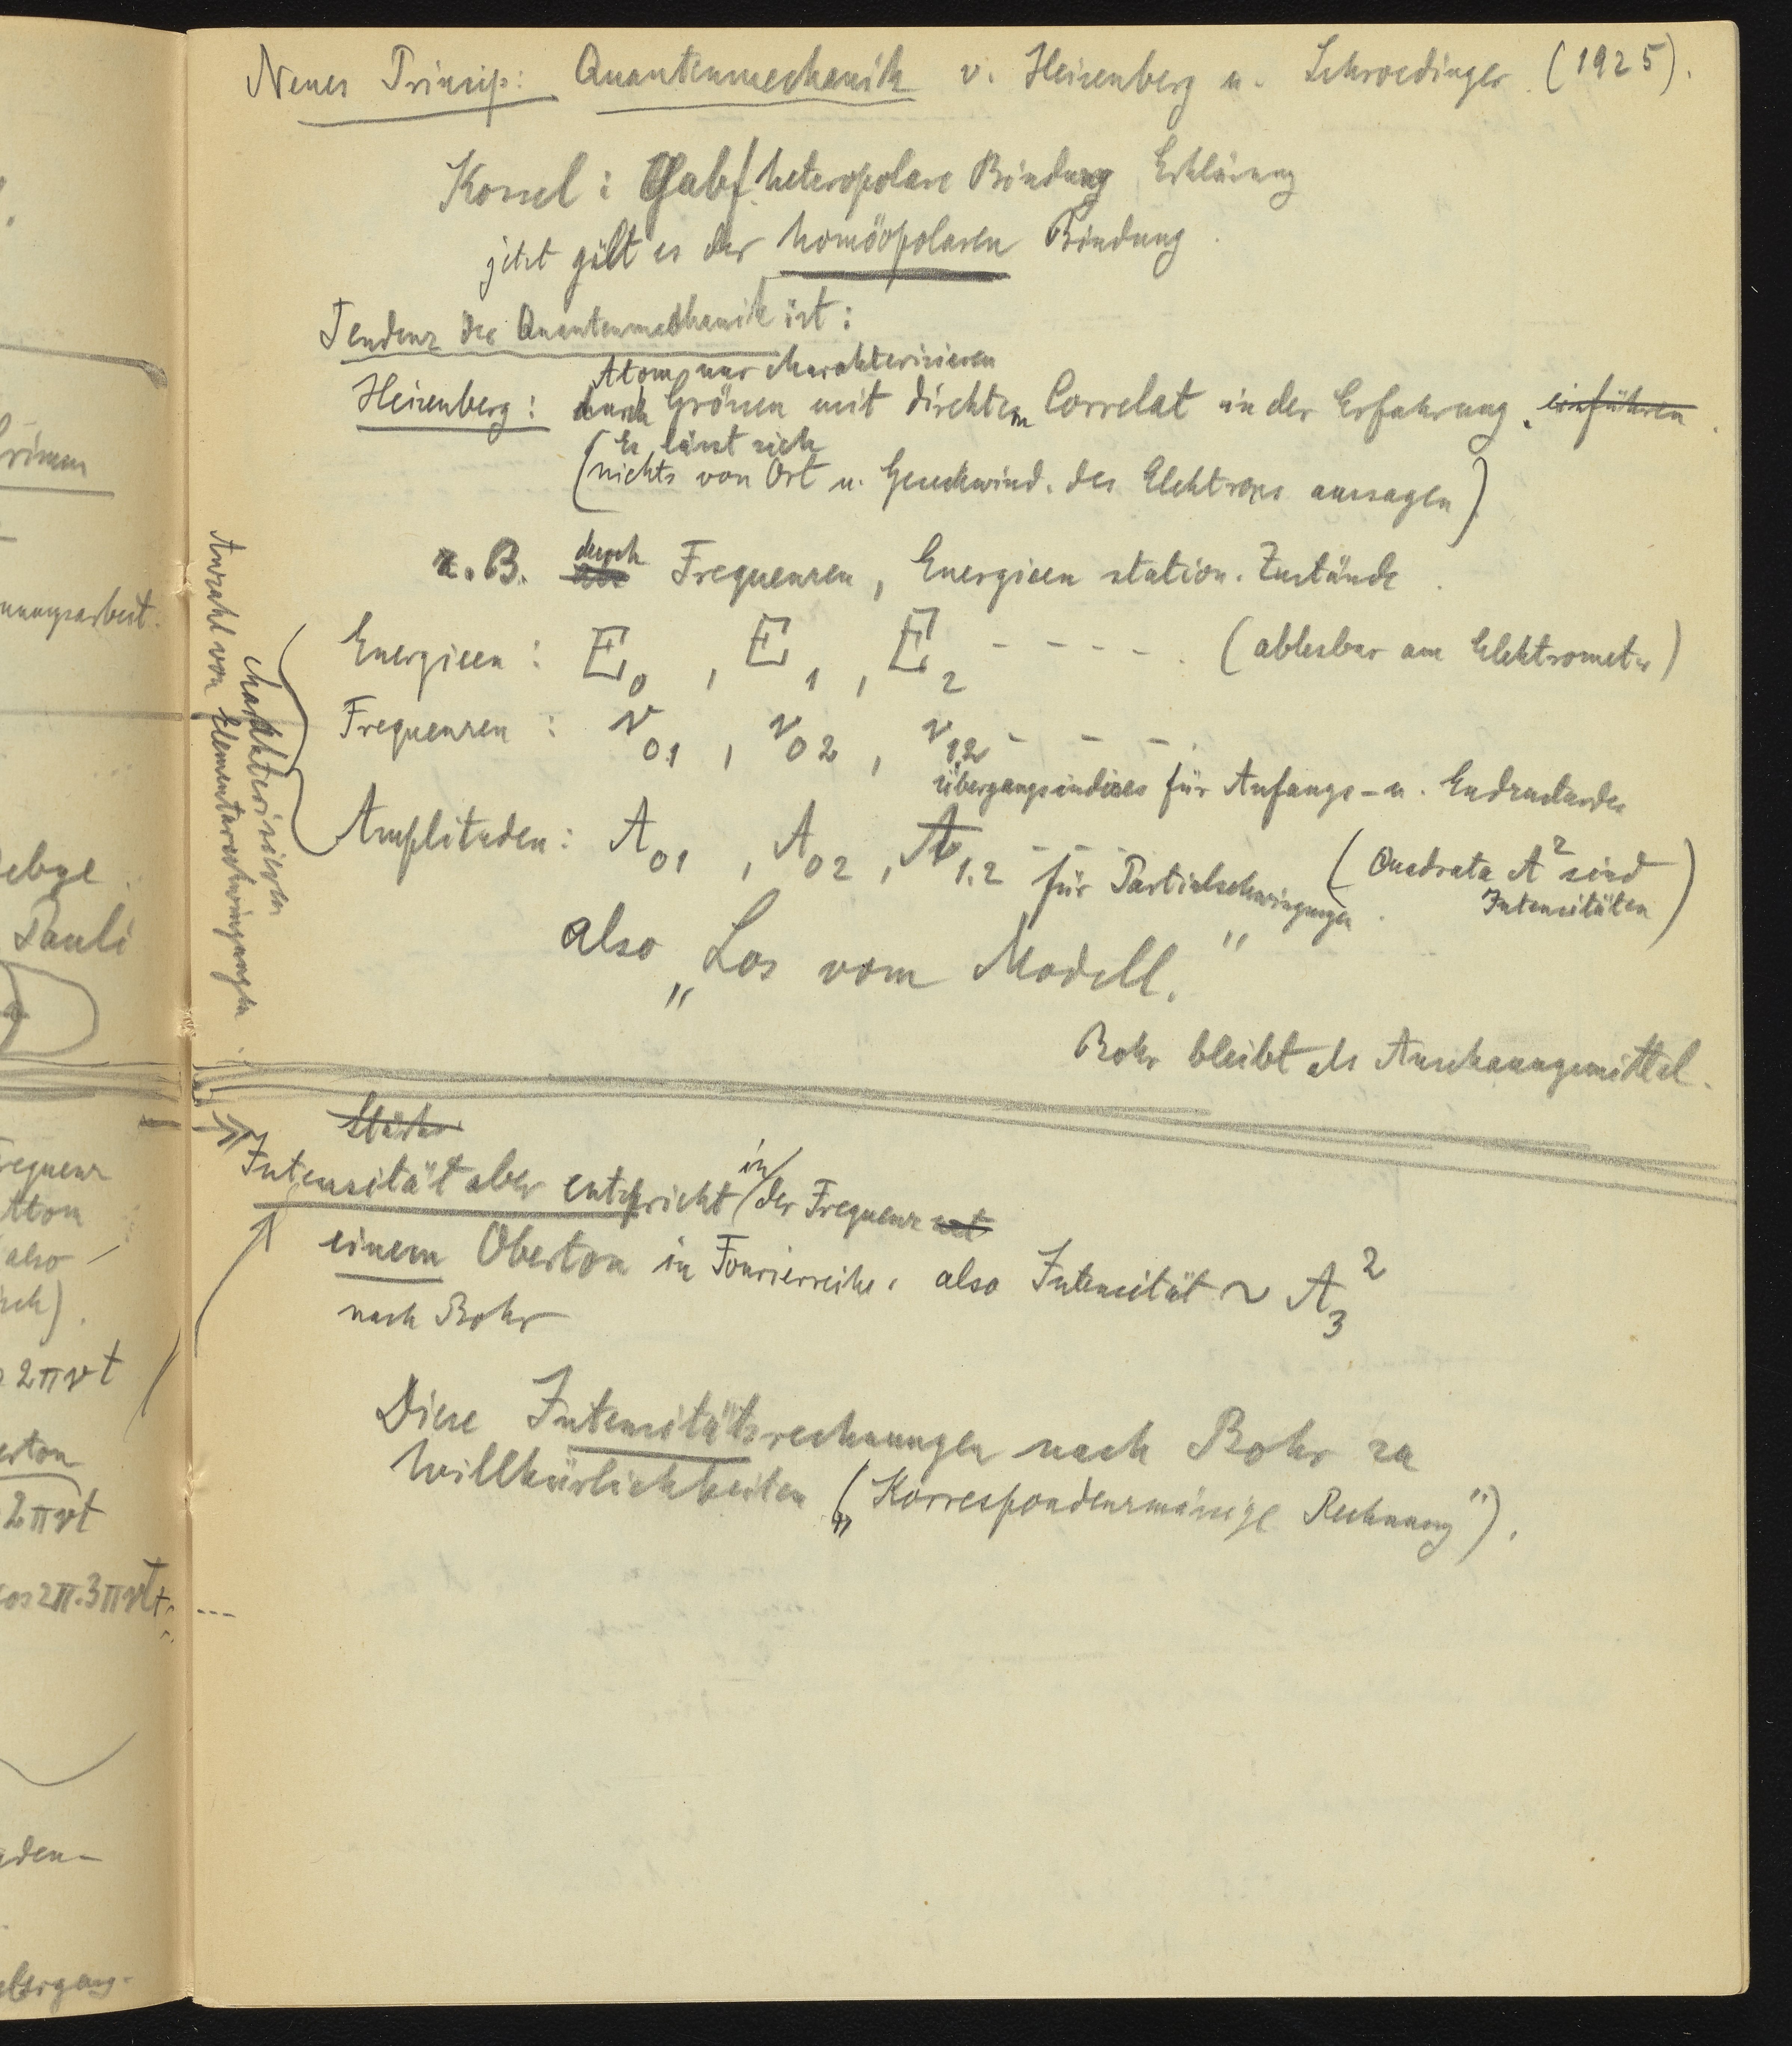 Neues Prinzip: Quantenmechanik v. Heisenberg u. Schroedinger (1925).
Kossel: Gab f. heteropolare Bindung Erklärung
jetzt gilt es der homöopolaren Bindung.
Tendenz der Quantenmechanik ist:
Atom nur charakterisieren
Heisenberg: durch Grössen mit direktem Correlat in der Erfahrung. einführen.
(Es lässt sich
nichts von Ort u. Geschwind. des Elektrons aussagen)
z.B. durch Frequenzen, Energieen station. Zustände.
Energieen: E0, E1, E2 - - - - - . (ablesbar am Elektrometer)
Frequenzen: ν01, ν02, ν12 - - - .
Übergangsindices für Anfangs- u. Endzustandes
Amplituden: A01, A02, A1.2 - - - für Partialschwingungen. (Quadrate A² sind
Intensitäten)
charakterisieren
Anzahl von Elementarschwingungen
also „Los vom Modell."
Bohr bleibt als Anschauungsmittel.
Stärke
Intensität aber entspricht in der Frequenz
einem Oberton in Fourierreihe, also Intensität ~ A3²
nach Bohr
Diese Intensitätsrechnungen nach Bohr zu
Willkürlichkeiten („Korrespondenzmässige Rechnung").
nungsarbeit.
Debye
Pauli
Frequenz
Atom
also
2πνt
2πνt
cos2π.3πνt + ---